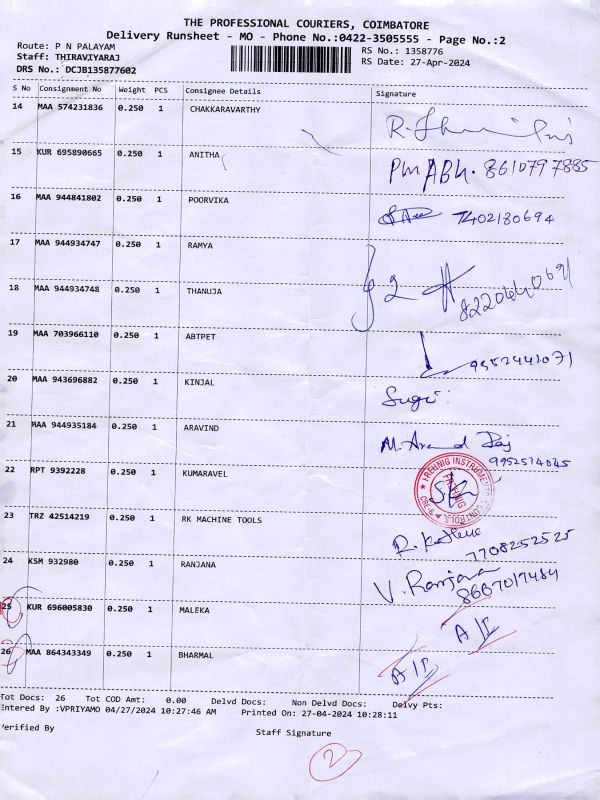 THE PROFESSIONAL COURIERS, COIMBATORE
Delivery Runsheet - MO - Phone No.:0422-3505555 - Page No.:2
Route: P N PALAYAM
Staff: THIRAVIYARAJ
DRS No.: DCJB135877602
RS No.: 1358776
RS Date: 27-Apr-2024
S No Consignment No Weight PCS Consignee Details Signature
14 MAA 574231836 0.250 1 CHAKKARAVARTHY
15 KUR 695890665 0.250 1 ANITHA 8610797885
16 MAA 944841802 0.250 1 POORVIKA 7402180694
17 MAA 944934747 0.250 1 RAMYA
18 MAA 944934748 0.250 1 THANUJA
19 MAA 703966110 0.250 1 ABTPET 9952441071
20 MAA 943696882 0.250 1 KINJAL
21 MAA 944935184 0.250 1 ARAVIND
22 RPT 9392228 0.250 1 KUMARAVEL
23 TRZ 42514219 0.250 1 RK MACHINE TOOLS 7708252525
24 KSM 932980 0.250 1 RANJANA V. Ranjana 8667017484
25 KUR 696005830 0.250 1 MALEKA
26 MAA 864343349 0.250 1 BHARMAL
Tot Docs: 26 Tot COD Amt: 0.00 Delvd Docs: Non Delvd Docs: Delvy Pts:
Entered By :VPRIYAMO 04/27/2024 10:27:46 AM Printed On: 27-04-2024 10:28:11
Verified By
Staff Signature
2